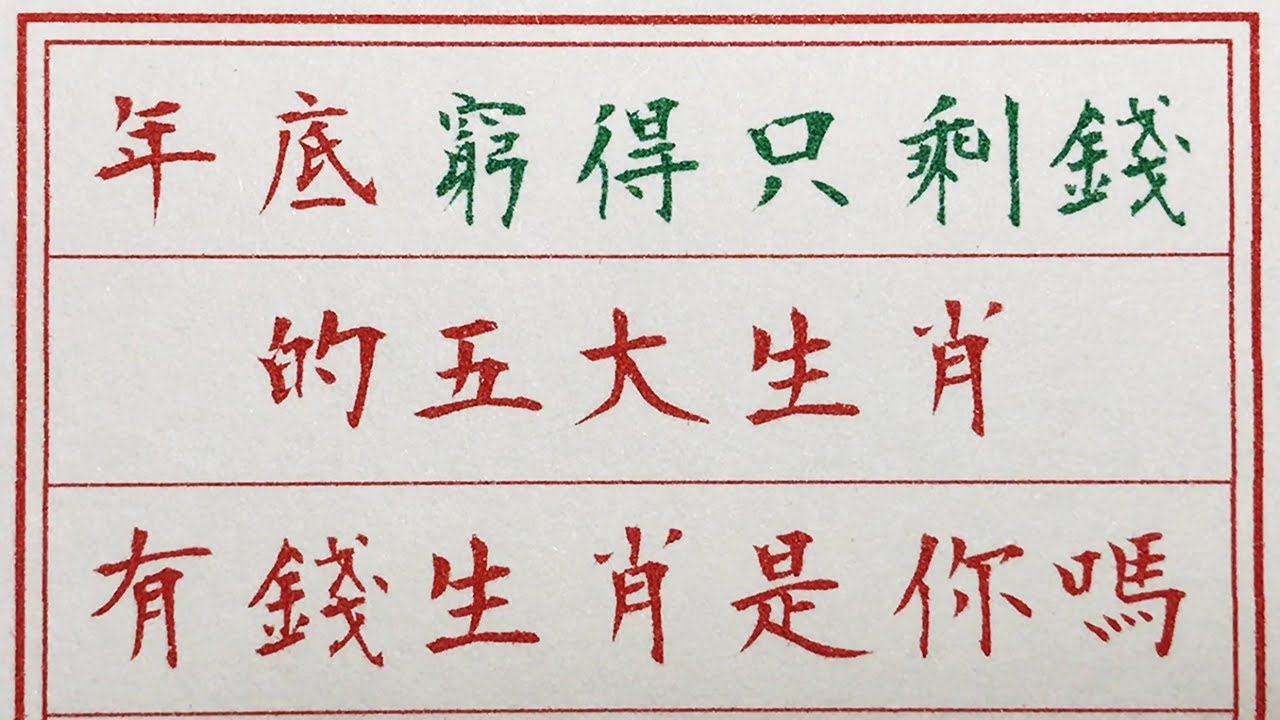 年底窮得只剩錢
的五大生肖
有錢生肖是你嗎